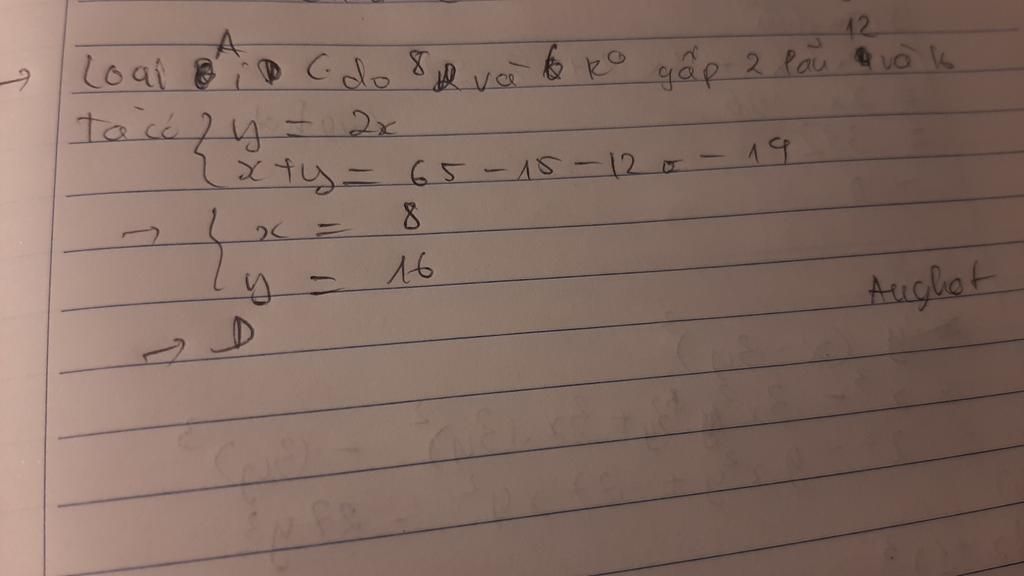 Loại A; C do 8 và 6 ko gấp 2 lần 12 và 16
ta có { y = 2x
x + y = 65 - 15 - 12 - 14
→ { x = 8
y = 16
Aughot
→ D